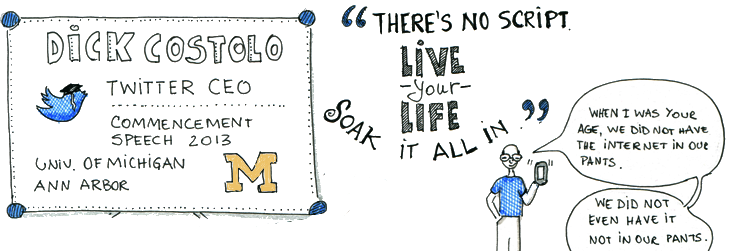 DICK COSTOLO
TWITTER CEO
COMMENCEMENT
SPEECH 2013
UNIV. OF MICHIGAN
ANN ARBOR
M
“THERE'S NO SCRIPT.
LIVE
-your-
LIFE
SOAK IT ALL IN.”
WHEN I WAS YOUR
AGE, WE DID NOT HAVE
THE INTERNET IN OUR
PANTS.
WE DID NOT
EVEN HAVE IT
NOT IN OUR PANTS.